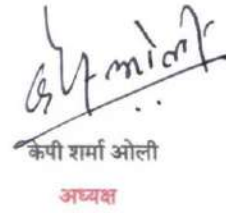 केपी शर्मा ओली
अध्यक्ष